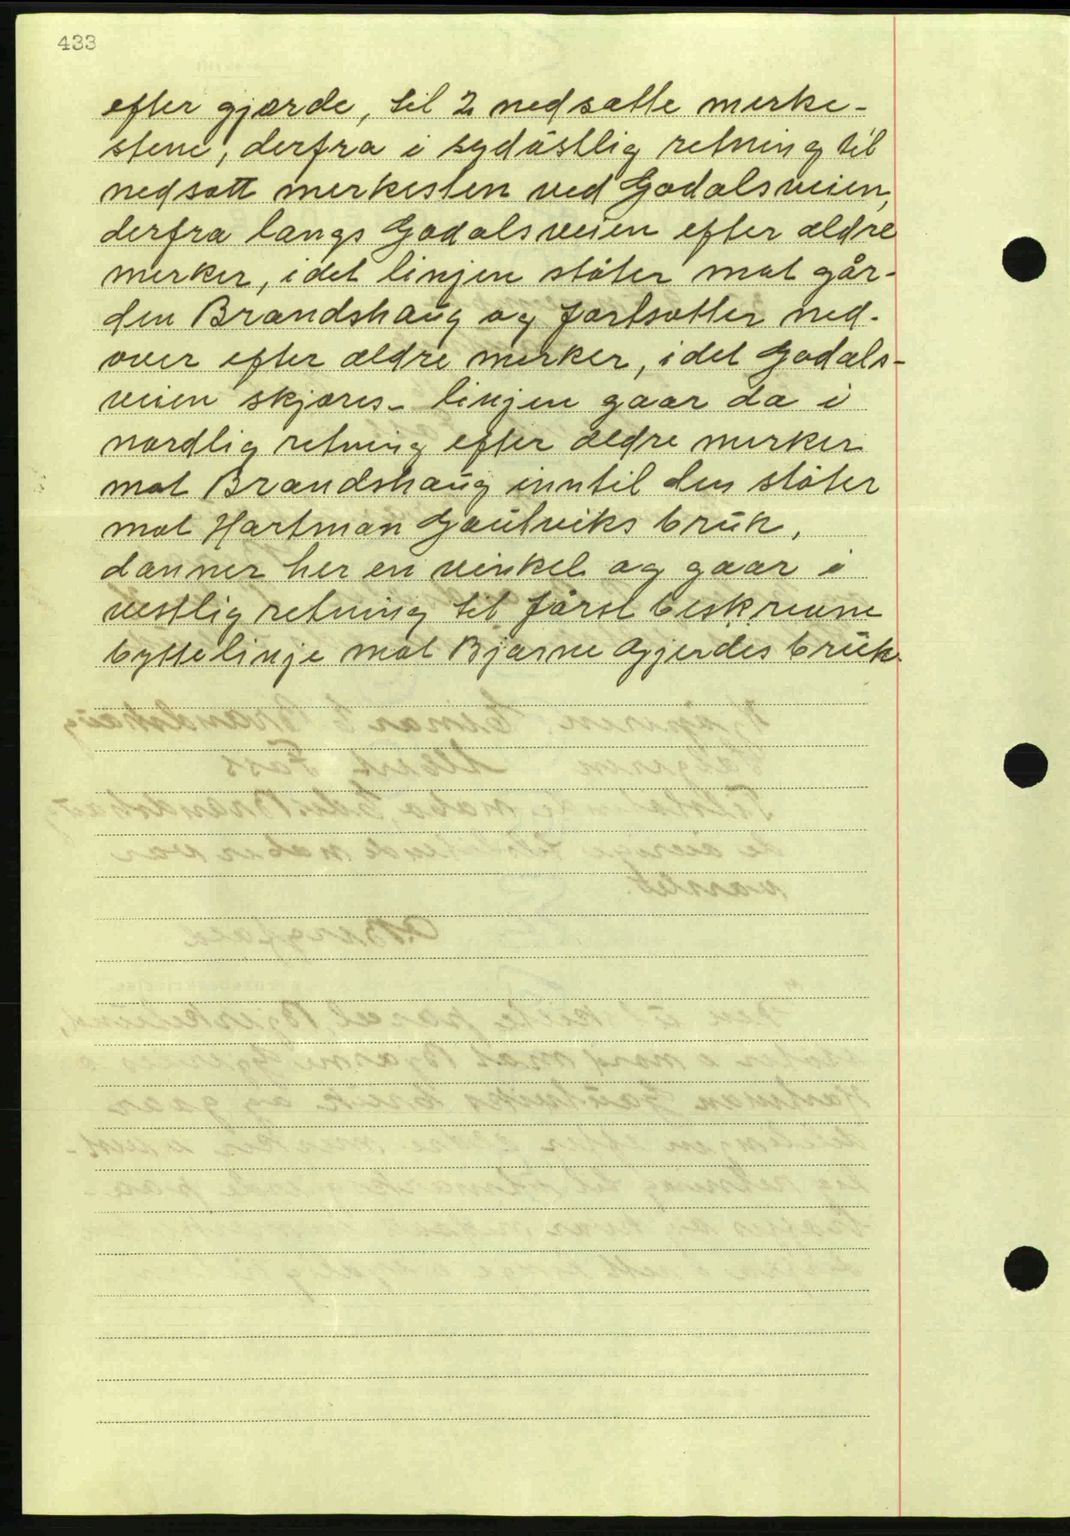 433
efter gjærde, til 2 nedsatte merke-
stene, derfra i sydöstlig retning til
nedsatt merkesten ved Godalsveien,
derfra langs Godalsveien efter ældre
merker, idet linjen stöter mot går-
den Brandshaug og fortsætter ned-
over efter ældre merker, idet Godals-
veien skjæres - linjen gaar da i
nordlig retning efter ældre merker
mot Brandshaug inntil den stöter
mot Hartman Gautviks bruk,
danner her en vinkel og gaar i
vestlig retning til först beskrevne
byttelinje mot Bjarne Gjerdes bruk.